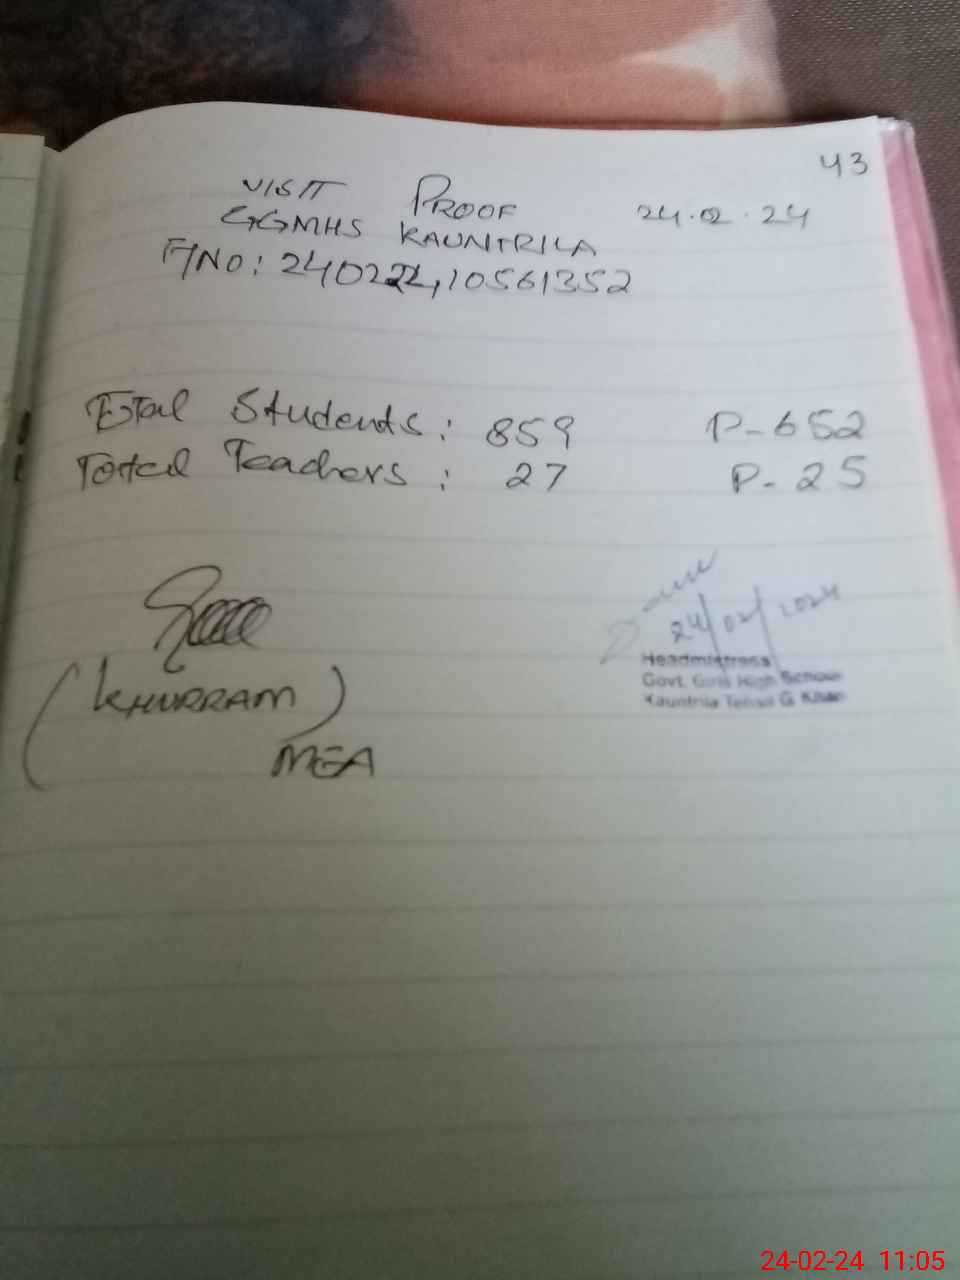 43
VISIT PROOF 24.02.24
GGMHS KAUNTRILA
F/NO: 240224,10561352
Total Students: 859 P-652
Total Teachers: 27 P-25
24/02/2024
Headmistress
Govt. Girls High School
Kauntrila Tehsil G. Khan
(KHURRAM)
MEA
24-02-24 11:05